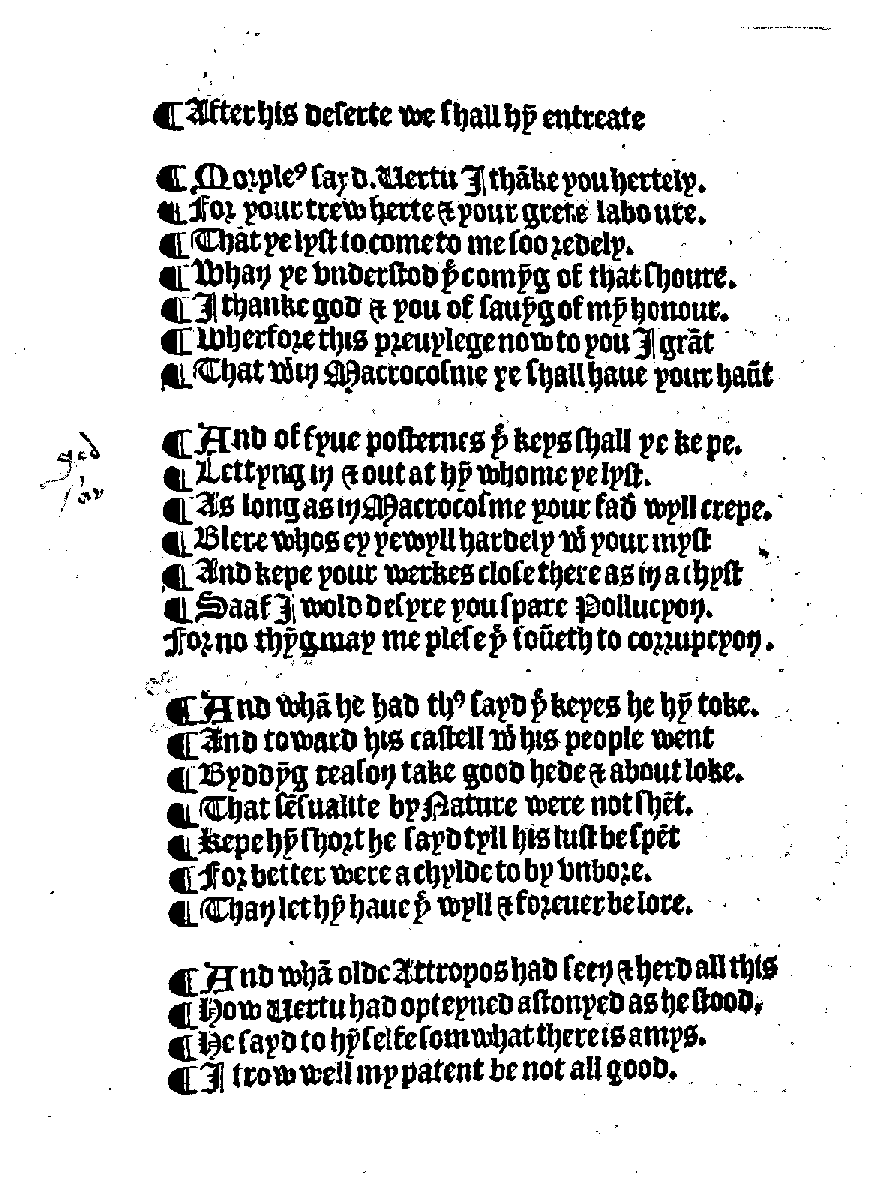 ¶ After his deserte we shall hỹ entreate
¶ Morpleꝰ sayd. Uertu I thãke you hertely.
¶ For your trew herte & your grete laboure.
¶ That ye lyst to come to me soo redely.
¶ Whan ye vnderstod yͤ comỹg of that shoure.
¶ I thanke god & you of sauỹg of my honour.
¶ Wherfore this preuylege now to you I grãt
¶ That wͭin Macrocosme ye shall haue your haũt
¶ And of fyue posternes yͤ keys shall ye kepe.
¶ Lettyng in & out at hỹ whome ye lyst.
¶ As long as in Macrocosme your fad̛ wyll crepe.
¶ Blere whos ey ye wyll hardely wͭ your myst
¶ And kepe your werkes close there as in a chyst
¶ Saaf I wold desyre you spare Pollucyon.
For no thỹg may me plese yͭ soũeth to corrupcyon.
¶ And whã he had thꝰ sayd yͤ keyes he hỹ toke.
¶ And toward his castell wͭ his people went
¶ Byddỹg reason take good hede & about loke.
¶ That sẽsualite by Nature were not shẽt.
¶ Kepe hỹ short he sayd tyll his lust be spẽt
¶ For better were a chylde to by vnbore.
¶ Than let hỹ haue yͤ wyll & for euer be lore.
¶ And whã olde Attropos had seen & herd all this
¶ How Uertu had opteyned astonyed as he stood,
¶ He sayd to hỹ selfe som what there is amys.
¶ I trow well my patent be not all good.